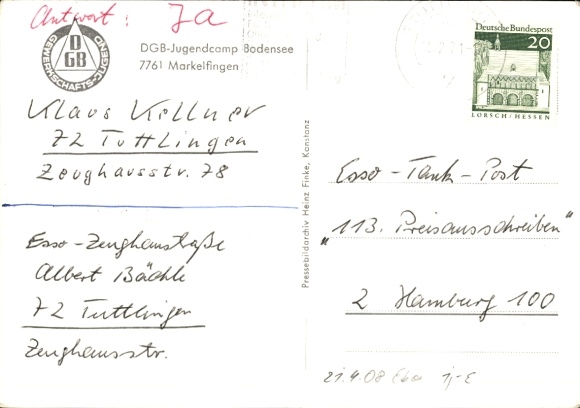 Antwort: Ja
D
GB
GEWERKSCHAFTS-JUGEND
DGB-Jugendcamp Bodensee
7761 Markelfingen
Klaus Kellner
72 Tuttlingen
Zeughausstr. 78
Esso-Zeughausstraße
Albert Bächle
72 Tuttlingen
Zeughausstr.
Pressebildarchiv Heinz Finke, Konstanz
Deutsche Bundespost
20
LORSCH/HESSEN
Esso-Tank-Post
"113. Preisausschreiben"
2 Hamburg 100
21.4.08